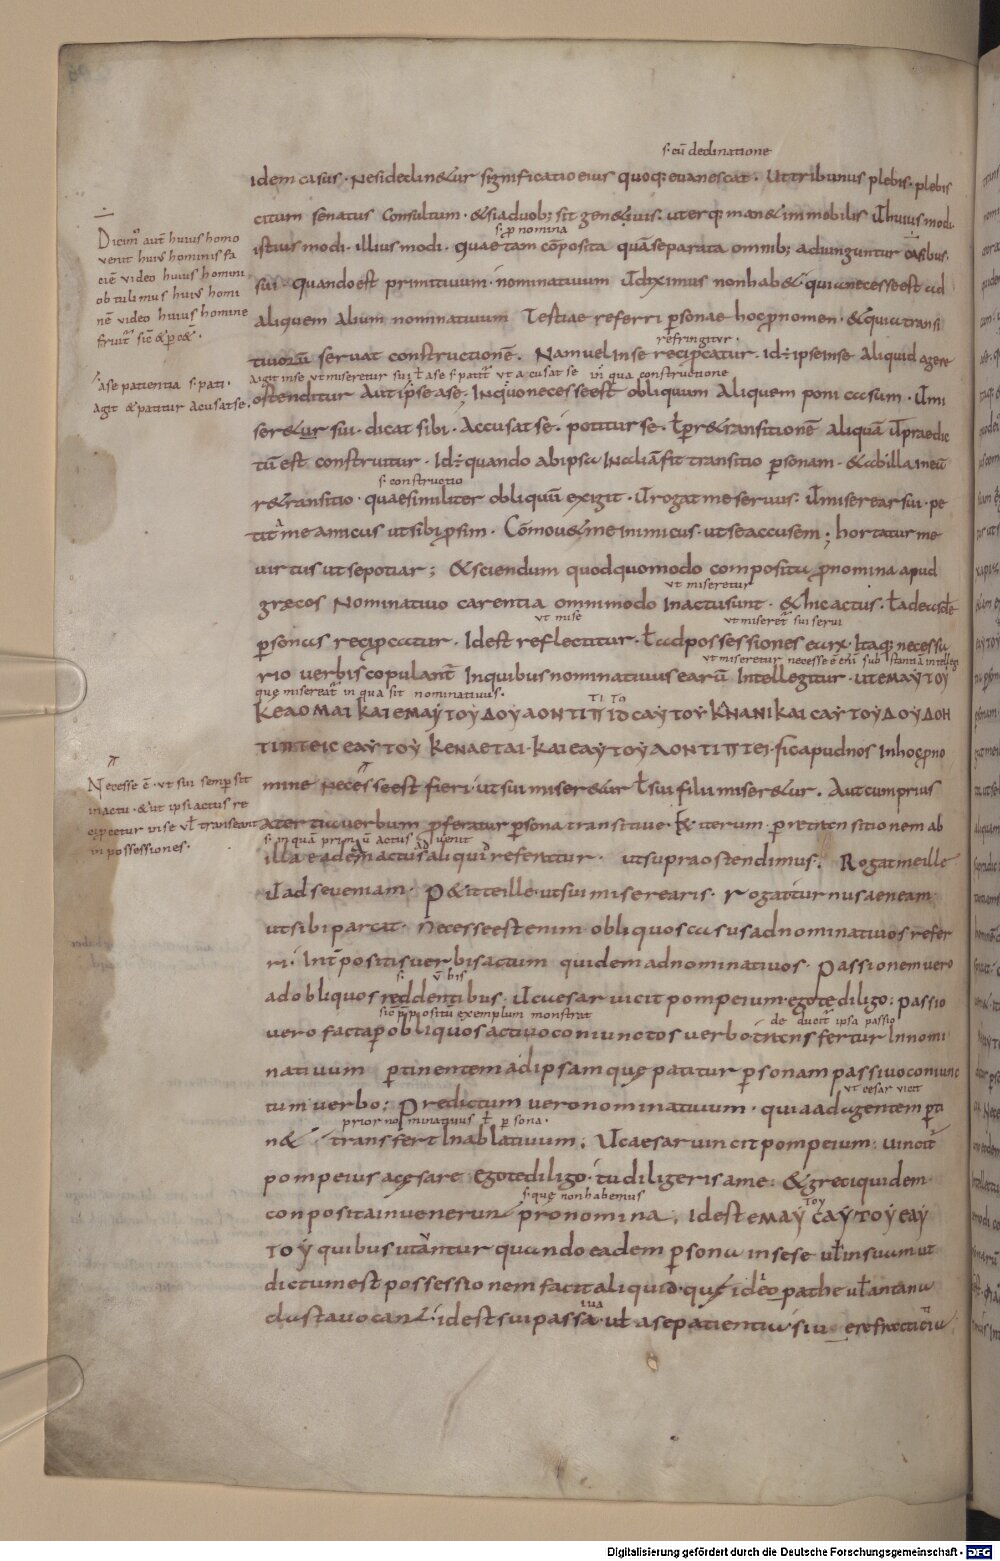 s. cū declinatione
idem casus. Nesideclin&ur significatio eius quoq; euanescat. Ut tribunus plebis. plebis
citum senatus Consultum. &siaduob; sit gen&iuis. uterq; man& immobilis ut huius modi.
s. pnomina
istius modi. illius modi. quae tam cōposita quā separata omnib; adiunguntur casibus.
sui quando est primitiuum. nominatiuum ut diximus non hab& quia necesse est ad
aliquem alium nominatiuum Tertiae referri psonae hoc pnomen. & quia transi
refringitur.
tiuorū seruat constructionē. Nam uel in se recipcatur. id÷ ipse in se aliquid agere
ostenditur Aut ipse a se; In quo necesse est obliquum Aliquem poni casum. ut mi
ser&ur sui. dicat sibi. Accusat se. potitur se. ł pr&ransitionē aliquā ut praedic
tū est construitur. Id÷ quando ab ipsa in aliā fit transitio psonam. & ab illa in eū
s. constructio
r&ransitio. quae similiter obliquū exigit. ut rogat me seruus. ut miserear sui. pe
tit me amicus ut sibi psim. Cōmou& me inimicus. ut se accusem; hortatur me
uirtus ut se potiar; & sciendum quod quomodo composita pnomina apud
ut miseretur
grecos Nominatiuo carentia omnimodo in actu sunt. & hic actus. ł ad easdē
ut mise ut miseret sui serui
psonas recipcatur. Id est reflectitur. ł ad possessiones earx. Itaq; necessa
rio uerbis copulant In quibus nominatiuus earū Intellegitur. ut ΕΜΑΥΤΟΥ
quę misereat in qua sit nominatiuus.
ΚΕΔΟΜΑΙ ΚΑΙ ΕΜΑΥΤΟΥ ΔΟΥΛΟΝ ΤΙΠΤΟ CΑΥΤΟΥ ΚΗΔΗ ΚΑΙ CΑΥΤΟΥ ΔΟΥΛΟΝ
ΤΙΠΤΕΙC ΕΑΥΤΟΥ ΚΕΔΕΤΑΙ. ΚΑΙ ΕΑΥΤΟΥ ΛΟΝ ΤΙΠΤΕΙ. sic apud nos In hoc pno
mine Necesse est fieri. ut sui miser&ur ł sui filii miser&ur. Aut cum prius
alterius uerbum pferatur psona transitiue. & iterum. p retransitionem ab
illa eadem actus ad aliquē referatur. ut supra ostendimus. Rogat me ille
ut ad se ueniam. P&it te ille ut sui miserearis. rogatiur nus aeneam
ut sibi parcat. Necesse est enim obliquos casus ad nominatiuos refer
ri. Int positis uerbis actum quidem ad nominatiuos. Passionem uero
s. ūbis
ad obliquos reddentibus. ut caesar uicit pompeium. ego te diligo: passio
sic ppositū exemplum monstrat
de ducit ipsa passio
uero facta p obliquos actiuo coniunctos uerbo transfertur In nomi
natiuum ptinentem ad ipsam quę patitur psonam passiuo coniunc
ut cesar uicit
tum uerbo: Predictum uero nominatiuum. quia ad agentem pti
prior nominatiuus ł psona.
n& transfert In ablatiuum. ut caesar uincit pompeium. uincit
pompeius a cęsare ego te diligo. tu diligeris a me. & greci quidem
s. quę non habemus
conposita inuenerunt pronomina. id est ΕΜΑΥΤΟΥ CΑΥΤΟΥ ΕΑΥ
ΤΟΥ quibus utantur quando eadem psona in sese uł in suam ut
dictum est possessionem facit aliquid. quę ideo pathe uł antana
clusta uocant. id est sui passiua. uł a se patientia siue refractiua
Dicim aut huius homo
uenit huius hominis fa
ciē video huius homini
obtulimus huius homi
nē video huius homine
fruit sic & p cet.
a se patientia s. pati.
agit & patitur acusat se.
Necesse ē. vt sui semp sit
in actu. & ut ipsi actus re
cipcetur in se vł transeant
in possessiones.
Digitalisierung gefördert durch die Deutsche Forschungsgemeinschaft - DFG